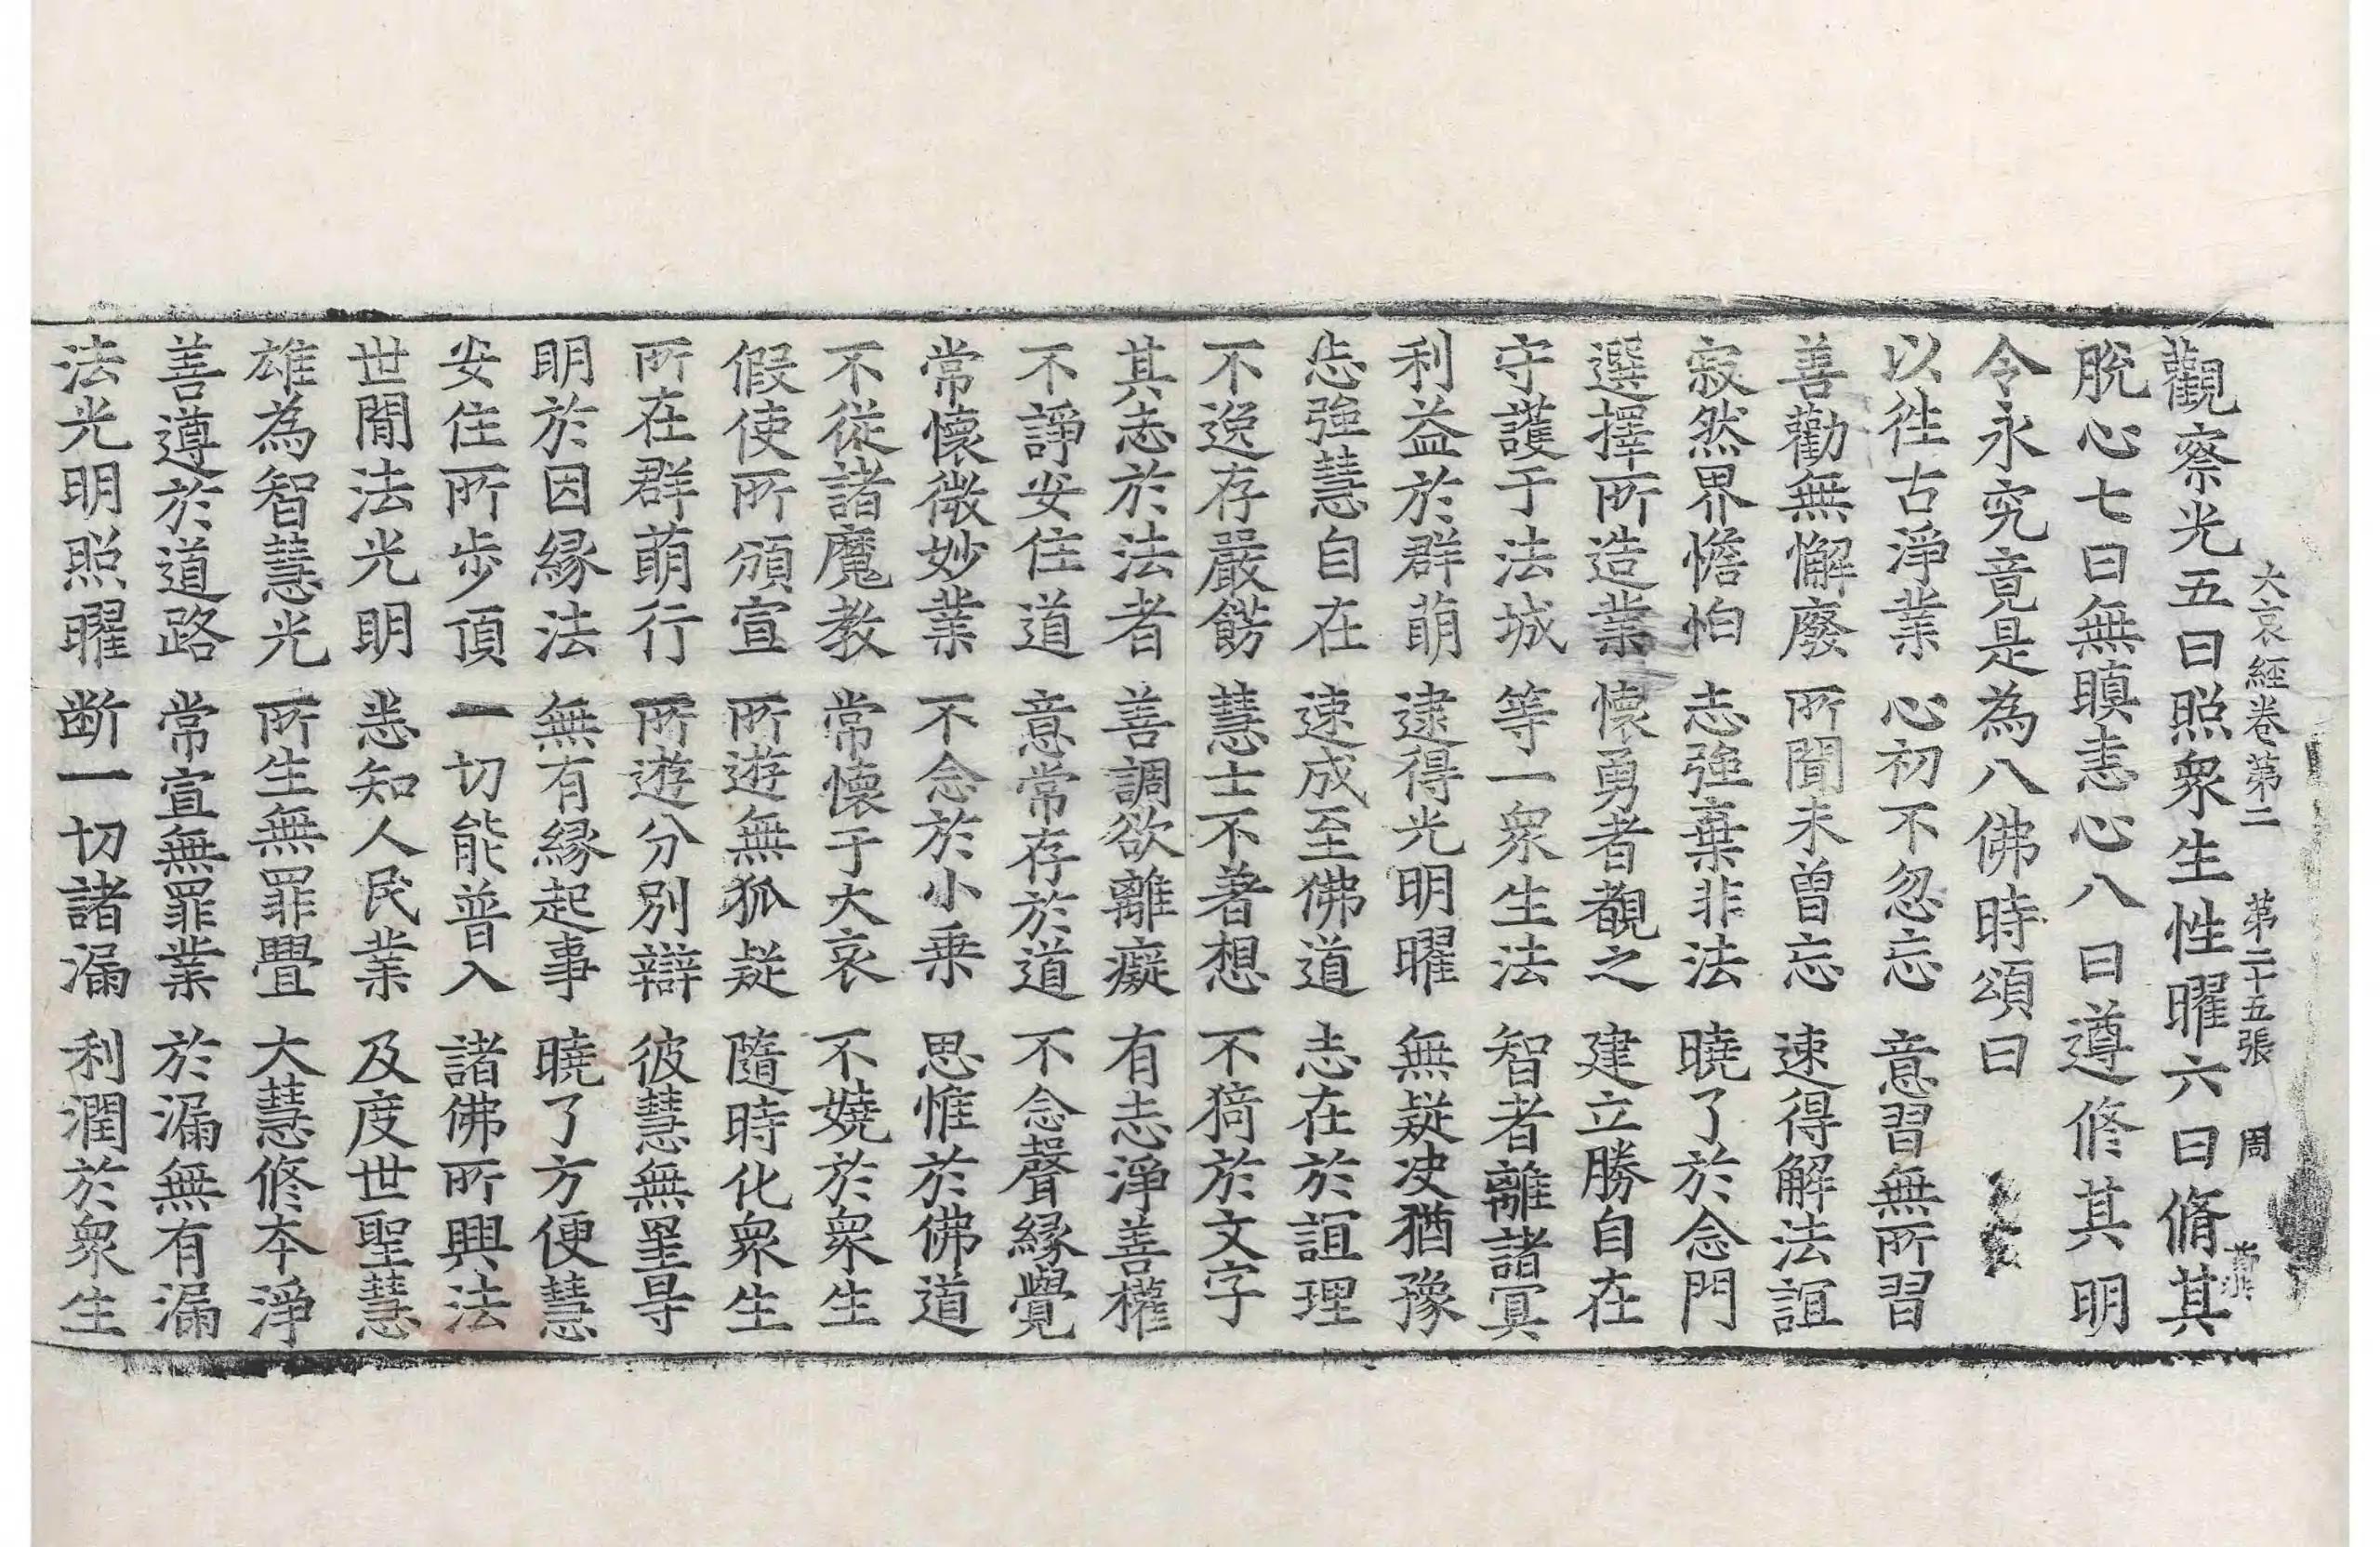 大哀經卷第二 第二十五張 周
觀察光五曰照衆生性曜六曰脩其
脫心七曰無瞋恚心八曰遵修其明
令永究竟是為八佛時頌曰
以往古淨業 心初不忽忘 意習無所習
善勸無懈廢 所聞未曾忘 速得解法誼
寂然界憺怕 志強棄非法 曉了於念門
選擇所造業 懷勇者覩之 建立勝自在
守護于法城 等一衆生法 智者離諸冥
利益於群萌 逮得光明曜 無疑決猶豫
志強慧自在 速成至佛道 志在於誼理
不逸存嚴餝 慧士不著想 不猗於文字
其志於法者 善調欲離癡 有志淨善權
不諍安住道 意常存於道 不念聲縁覺
常懷微妙業 不念於小乗 思惟於佛道
不從諸魔教 常懷于大哀 不嬈於衆生
假使所頒宣 所遊無狐疑 隨時化衆生
所在群萌行 所遊分別辯 彼慧無罣㝵
明於因縁法 無有縁起事 曉了方便慧
安住所步頂 一切能普入 諸佛所興法
世閒法光明 悉知人民業 及度世聖慧
雄為智慧光 所生無罪舋 大慧修本淨
善遵於道路 常宣無罪業 於漏無有漏
法光明照曜 断一切諸漏 利潤於衆生